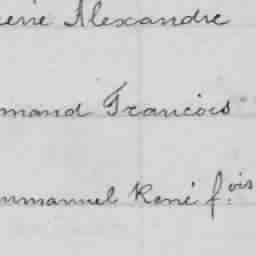 ierre Alexandre
mand Francois
mmanuel René f.ois